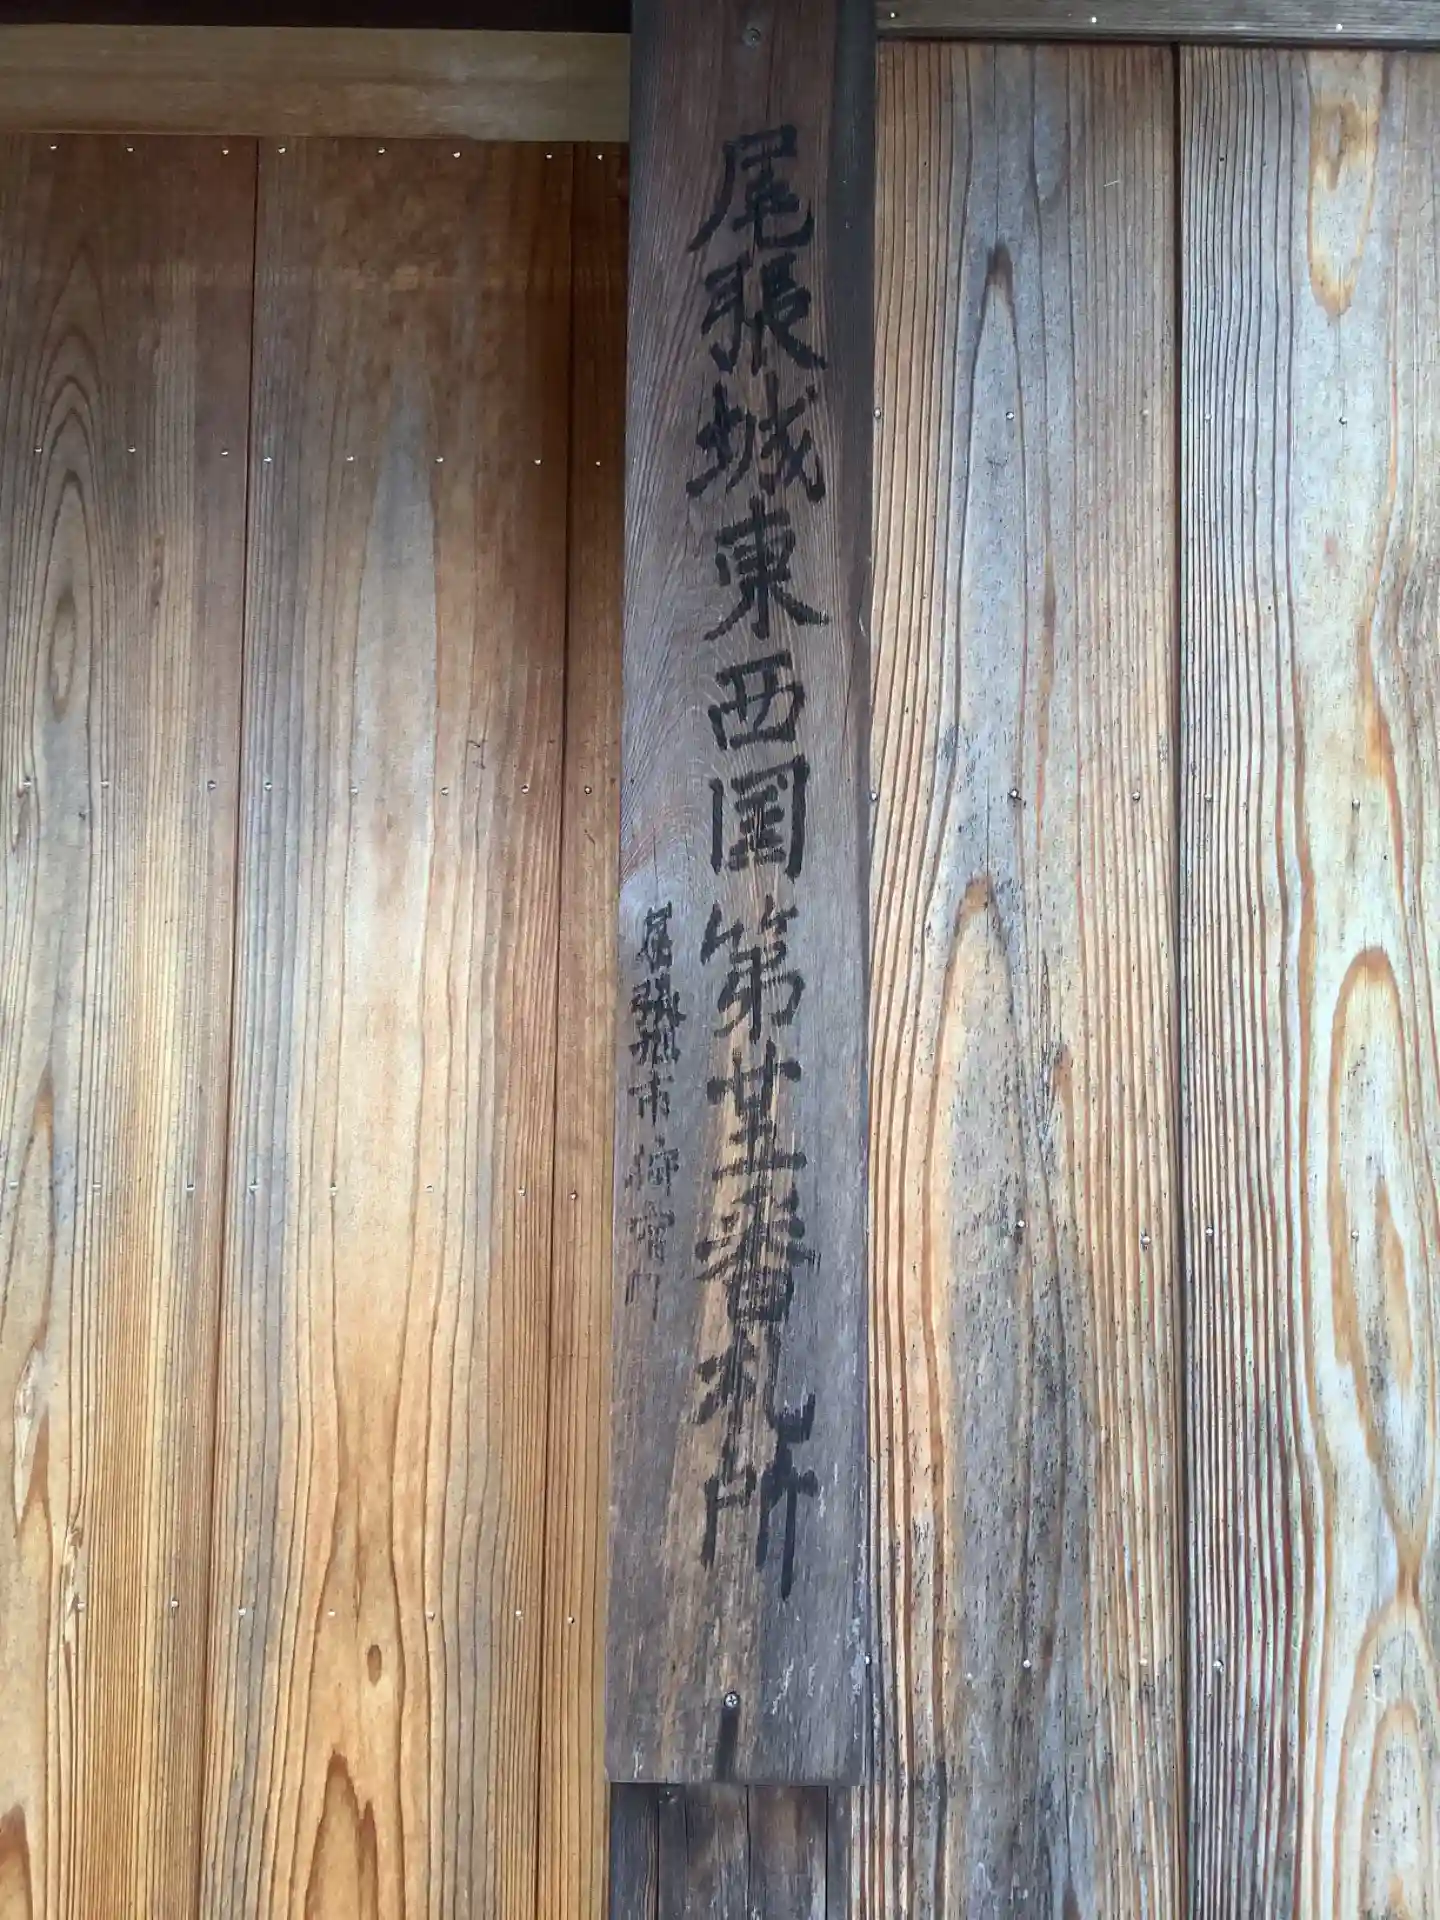 尾張城東西国第廿二番札所
尾張旭市狩宿町